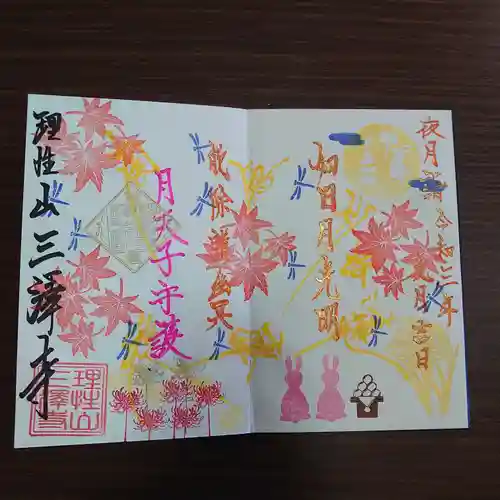 夜月詣 令和三年
九月吉日
如日月光明
能除諸幽冥
月天子守護
理性山 三澤寺
理性山
三澤寺